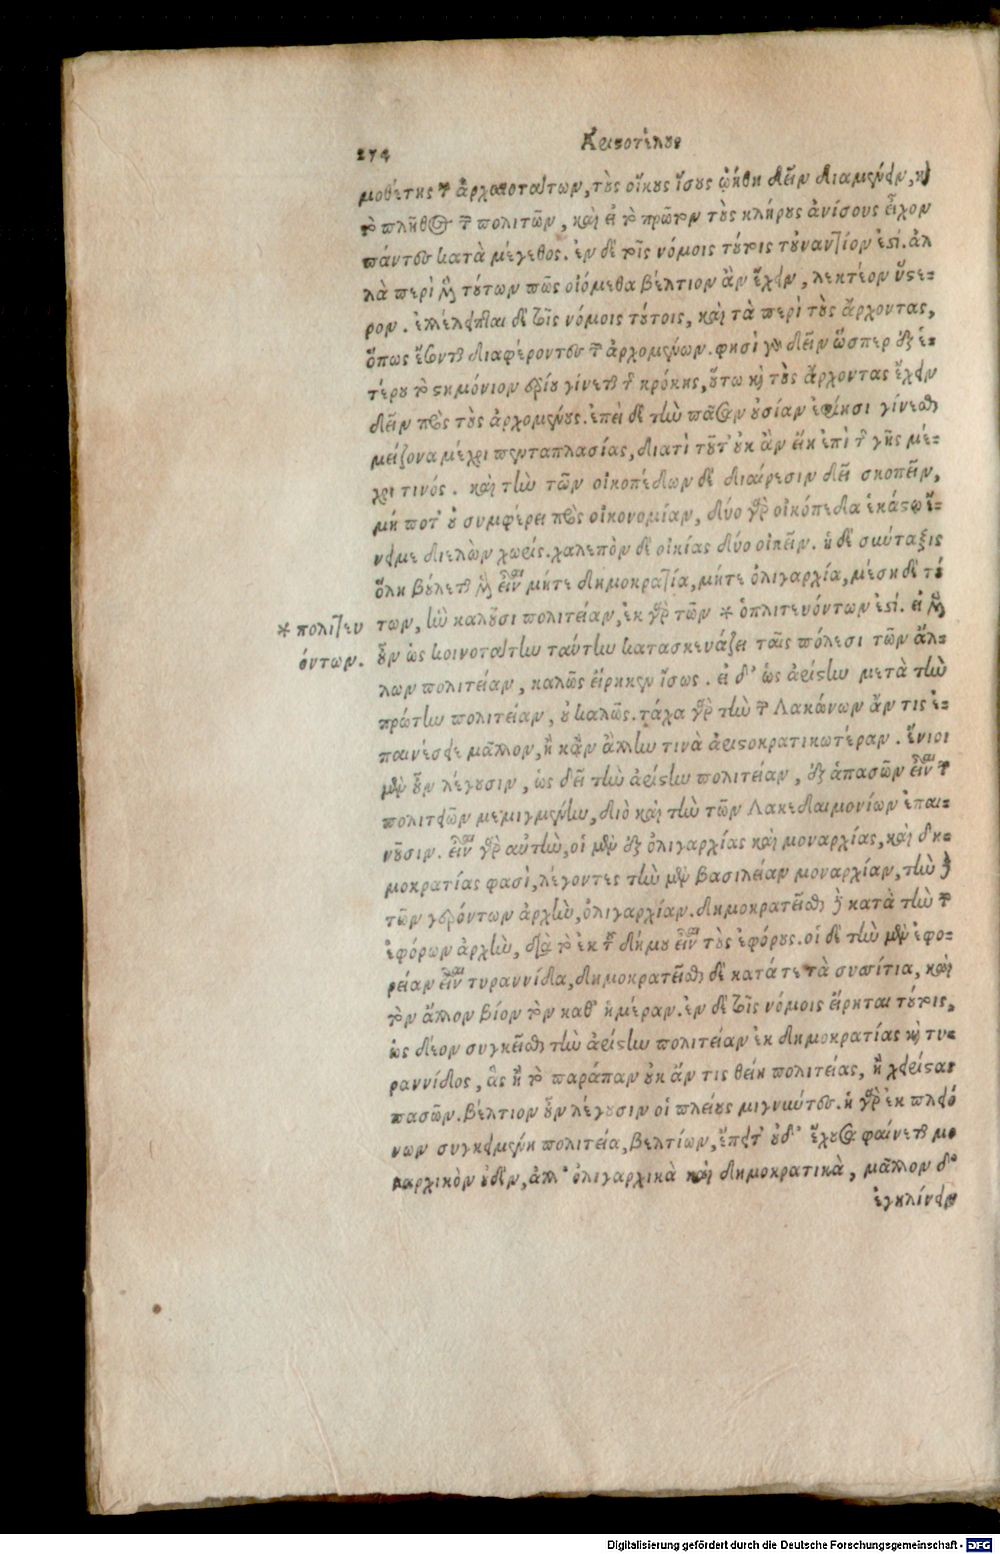 274
Ἀριστοτέλους
μοθέτης τῶν ἀρχαιοτάτων, τοὺς οἴκους ἴσους ᾠήθη δεῖν διαμένειν, καὶ
τὸ πλῆθος τῶν πολιτῶν, καὶ εἰ τὸ πρῶτον τοὺς κλήρους ἀνίσους εἶχον
πάντες κατὰ μέγεθος. ἐν δὲ τοῖς νόμοις τούτοις τοὐναντίον ἐστί. ἀλ
λὰ περὶ μὲν τούτων πῶς οἰόμεθα βέλτιον ἂν ἔχειν, λεκτέον ὕστε-
ρον. ἐλλέλειπται δὲ τοῖς νόμοις τούτοις, καὶ τὰ περὶ τοὺς ἄρχοντας,
ὅπως ἔσονται διαφέροντες τῶν ἀρχομένων. φησὶ γὰρ δεῖν ὥσπερ ἐξ ἑ-
τέρου τὸ στημόνιον ἐρίου γίνεται τῆς κρόκης, οὕτω καὶ τοὺς ἄρχοντας ἔχειν
δεῖν πρὸς τοὺς ἀρχομένους. ἐπεὶ δὲ τὴν πᾶσαν οὐσίαν ἐφίησι γίνεσθαι
μείζονα μέχρι πενταπλασίας, διατὶ τοῦτ' οὐκ ἂν εἴη ἐπὶ τῆς γῆς μέ-
χρι τινός. καὶ τὴν τῶν οἰκοπέδων δὲ διαίρεσιν δεῖ σκοπεῖν,
μή ποτ' οὐ συμφέρει πρὸς οἰκονομίαν, δύο γὰρ οἰκόπεδα ἑκάστῳ ἔ-
νειμε διελὼν χωρίς. χαλεπὸν δὲ οἰκίας δύο οἰκεῖν. ἡ δὲ σύνταξις
ὅλη βούλεται μὲν εἶναι μήτε δημοκρατία, μήτε ὀλιγαρχία, μέση δὲ τού
των, ἣν καλοῦσι πολιτείαν, ἐκ γὰρ τῶν * ὁπλιτευόντων ἐστί. εἰ μὲν
* πολιτευ
όντων.
οὖν ὡς κοινοτάτην ταύτην κατασκευάζει ταῖς πόλεσι τῶν ἄλ-
λων πολιτείαν, καλῶς εἴρηκεν ἴσως. εἰ δ' ὡς ἀρίστην μετὰ τὴν
πρώτην πολιτείαν, οὐ καλῶς. τάχα γὰρ τὴν τῶν Λακώνων ἄν τις ἐ-
παινέσειε μᾶλλον, ἢ κἂν ἄλλην τινὰ ἀριστοκρατικωτέραν. ἔνιοι
μὲν οὖν λέγουσιν, ὡς δεῖ τὴν ἀρίστην πολιτείαν, ἐξ ἁπασῶν εἶναι τῶν
πολιτειῶν μεμιγμένην, διὸ καὶ τὴν τῶν Λακεδαιμονίων ἐπαι-
νοῦσιν. εἶναι γὰρ αὐτὴν, οἱ μὲν ἐξ ὀλιγαρχίας καὶ μοναρχίας, καὶ δη-
μοκρατίας φασὶ, λέγοντες τὴν μὲν βασιλείαν μοναρχίαν, τὴν δὲ
τῶν γερόντων ἀρχὴν, ὀλιγαρχίαν. δημοκρατεῖσθαι δὲ κατὰ τὴν τῶν
ἐφόρων ἀρχὴν, διὰ τὸ ἐκ τοῦ δήμου εἶναι τοὺς ἐφόρους. οἱ δὲ τὴν μὲν ἐφο-
ρείαν εἶναι τυραννίδα, δημοκρατεῖσθαι δὲ κατά τε τὰ συσσίτια, καὶ
τὸν ἄλλον βίον τὸν καθ' ἡμέραν. ἐν δὲ τοῖς νόμοις εἴρηται τούτοις,
ὡς δέον συγκεῖσθαι τὴν ἀρίστην πολιτείαν ἐκ δημοκρατίας καὶ τυ-
ραννίδος, ἃς ἢ τὸ παράπαν οὐκ ἄν τις θείη πολιτείας, ἢ χειρίστας
πασῶν. βέλτιον οὖν λέγουσιν οἱ πλείους μιγνύντες. ἡ γὰρ ἐκ πλειό
νων συγκειμένη πολιτεία, βελτίων, ἔπειτ' οὐδ' ἔχουσα φαίνεται μο
ναρχικὸν οὐδὲν, ἀλλ' ὀλιγαρχικὰ καὶ δημοκρατικὰ, μᾶλλον δ'
ἐγκλίνειν
Digitalisierung gefördert durch die Deutsche Forschungsgemeinschaft - DFG